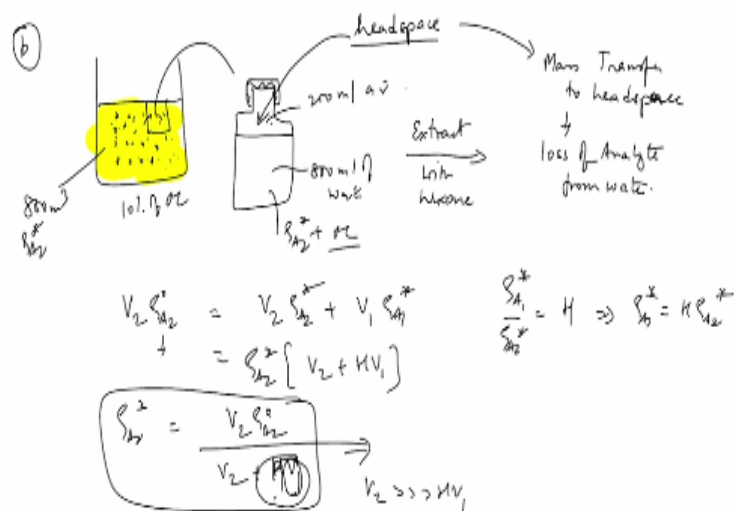 b
headspace
Mass Transfer
to headspace
↓
loss of Analyte
from water.
200ml air
800ml of
water
Extract
with
hexane
800m³
ρ*A2
10% of oe
ρA2* + oe
V₂ρ°A2 = V₂ρ*A2 + V₁ρ*A1
= ρ*A2 [V₂ + HV₁]
ρ*A1/ρ*A2 = H ⇒ ρ*A1 = Hρ*A2
ρ*A2 = V₂ρ°A2
V₂ + HV₁
V₂ >>> HV₁